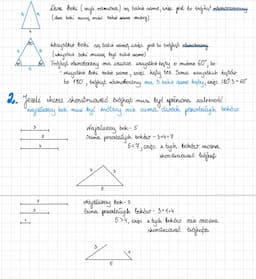 Dwa boki (muszą być) są takie same, więc jest to trójkąt równoramienny
(dwa boki muszą mieć takie same miary)
Wszystkie boki są takie same, więc jest to trójkąt równoboczny
(wszystkie boki muszą być takie same)
Trójkąt równoboczny ma zawsze wszystkie kąty o miarze 60°, bo
wszystkie boki takie same, więc kąty też. Suma wszystkich kątów
to 180, trójkąt równoboczny ma 3 takie same kąty, więc 180:3=60
2. Jeżeli chcesz skonstruować trójkąt musi być spełniona zależność:
najdłuższy bok musi być krótszy niż suma dwóch pozostałych boków
najdłuższy bok - 5
Suma pozostałych boków - 3+4=7
5<7, więc z tych boków można
skonstruować trójkąt
3
4
5
najdłuższy bok - 5
Suma pozostałych boków - 3+1=4
5>4, więc z tych boków nie można
skonstruować trójkąta
3
1
5